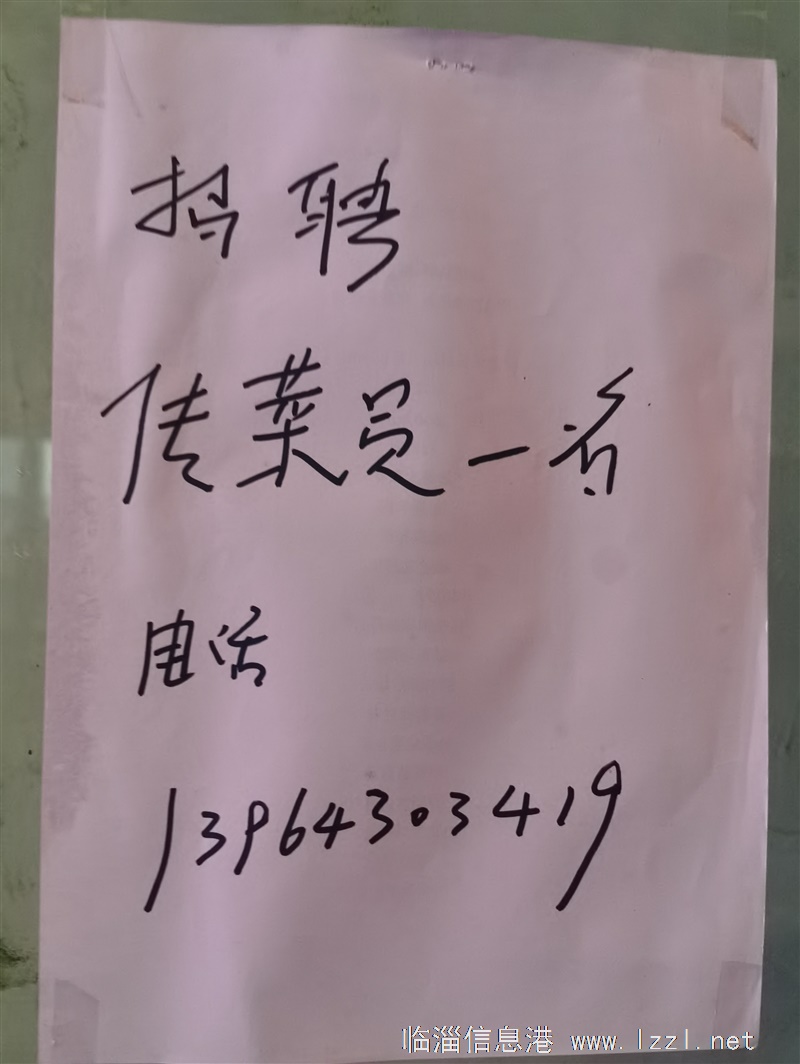 招聘
传菜员一名
电话
13964303419
临淄信息港 www.lzzl.net